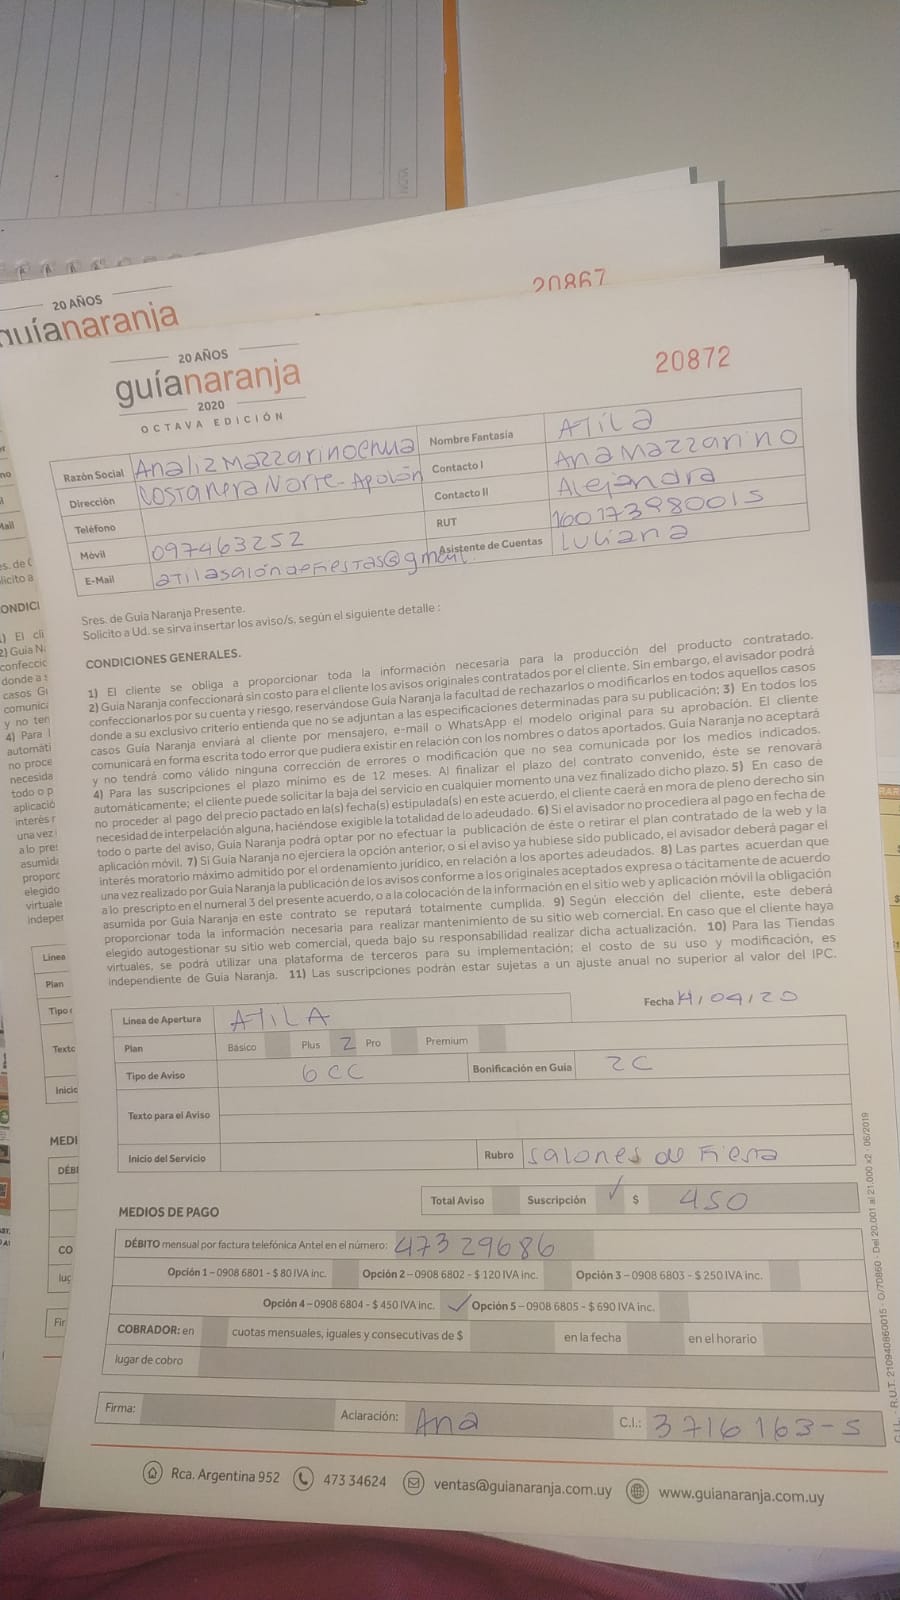 20 AÑOS
guíanaranja
20867
20 AÑOS
guíanaranja
2020
OCTAVA EDICIÓN
20872
Razón Social Analiz Mazzarino Chua
Nombre Fantasía ATILA
Dirección Costanera Norte - Apolón
Contacto I Ana Mazzarino
Teléfono
Contacto II Alejandra
Móvil 097463252
RUT 160173980015
E-Mail atilasalóndefiestas@gmail.
Asistente de Cuentas Luciana
Sres. de Guia Naranja Presente.
Solicito a Ud. se sirva insertar los aviso/s, según el siguiente detalle :
CONDICIONES GENERALES.
1) El cliente se obliga a proporcionar toda la información necesaria para la producción del producto contratado.
2) Guía Naranja confeccionará sin costo para el cliente los avisos originales contratados por el cliente. Sin embargo, el avisador podrá
confeccionarlos por su cuenta y riesgo, reservándose Guía Naranja la facultad de rechazarlos o modificarlos en todos aquellos casos
donde a su exclusivo criterio entienda que no se adjuntan a las especificaciones determinadas para su publicación; 3) En todos los
casos Guía Naranja enviará al cliente por mensajero, e-mail o WhatsApp el modelo original para su aprobación. El cliente
comunicará en forma escrita todo error que pudiera existir en relación con los nombres o datos aportados. Guía Naranja no aceptará
y no tendrá como válido ninguna corrección de errores o modificación que no sea comunicada por los medios indicados.
4) Para las suscripciones el plazo mínimo es de 12 meses. Al finalizar el plazo del contrato convenido, éste se renovará
automáticamente; el cliente puede solicitar la baja del servicio en cualquier momento una vez finalizado dicho plazo. 5) En caso de
no proceder al pago del precio pactado en la(s) fecha(s) estipulada(s) en este acuerdo, el cliente caerá en mora de pleno derecho sin
necesidad de interpelación alguna, haciéndose exigible la totalidad de lo adeudado. 6) Si el avisador no procediera al pago en fecha de
todo o parte del aviso, Guía Naranja podrá optar por no efectuar la publicación de éste o retirar el plan contratado de la web y la
aplicación móvil. 7) Si Guía Naranja no ejerciera la opción anterior, o si el aviso ya hubiese sido publicado, el avisador deberá pagar el
interés moratorio máximo admitido por el ordenamiento jurídico, en relación a los aportes adeudados. 8) Las partes acuerdan que
una vez realizado por Guía Naranja la publicación de los avisos conforme a los originales aceptados expresa o tácitamente de acuerdo
a lo prescripto en el numeral 3 del presente acuerdo, o a la colocación de la información en el sitio web y aplicación móvil la obligación
asumida por Guía Naranja en este contrato se reputará totalmente cumplida. 9) Según elección del cliente, este deberá
proporcionar toda la información necesaria para realizar mantenimiento de su sitio web comercial. En caso que el cliente haya
elegido autogestionar su sitio web comercial, queda bajo su responsabilidad realizar dicha actualización. 10) Para las Tiendas
virtuales, se podrá utilizar una plataforma de terceros para su implementación; el costo de su uso y modificación, es
independiente de Guía Naranja. 11) Las suscripciones podrán estar sujetas a un ajuste anual no superior al valor del IPC.
Fecha 14/04/20
Linea de Apertura ATILA
Plan Básico Plus 2 Pro Premium
Tipo de Aviso 6CC Bonificación en Guía 2C
Texto para el Aviso
Inicio del Servicio Rubro Salones de Fiesta
Total Aviso Suscripción ✓ $ 450
MEDIOS DE PAGO
DÉBITO mensual por factura telefónica Antel en el número: 47329686
Opción 1 – 0908 6801 - $ 80 IVA inc. Opción 2 – 0908 6802 - $ 120 IVA inc. Opción 3 – 0908 6803 - $ 250 IVA inc.
Opción 4 – 0908 6804 - $ 450 IVA inc. ✓ Opción 5 – 0908 6805 - $ 690 IVA inc.
COBRADOR: en cuotas mensuales, iguales y consecutivas de $ en la fecha en el horario
lugar de cobro
Firma: Aclaración: Ana C.I.: 3716163-5
Rca. Argentina 952 473 34624 ventas@guianaranja.com.uy www.guianaranja.com.uy
R.U.T. 210940860015 - O/70860 - Del 20.001 al 21.000 x2 - 06/2019